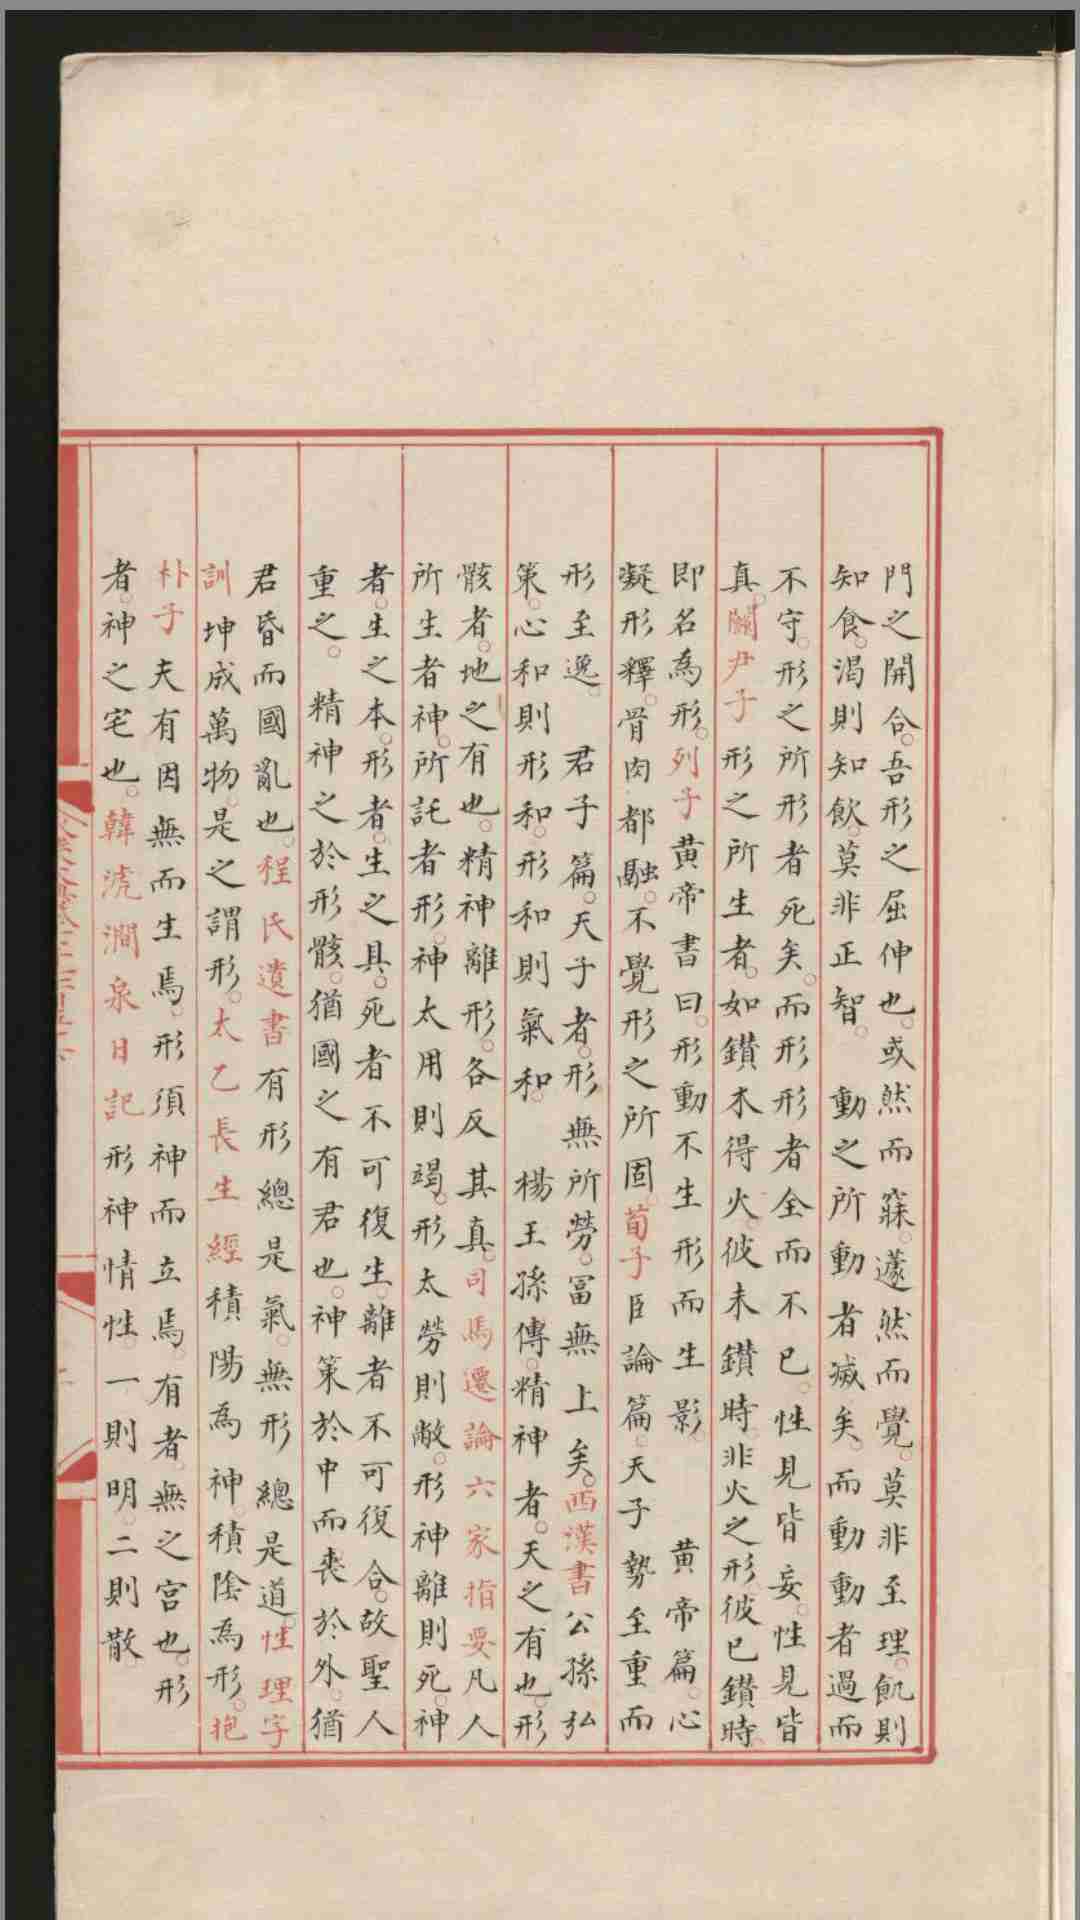 門之開合。吾形之屈伸也。或然而寐。蘧然而覺。莫非至理。飢則
知食。渴則知飲。莫非正智。　動之所動者滅矣。而動動者過而
不守。形之所形者死矣。而形形者全而不已。性見皆妄。性見皆
真。關尹子形之所生者。如鑚木得火。彼未鑚時。非火之形。彼已鑚時。
即名為形。列子黄帝書曰。形動不生形而生影。　黄帝篇。心
凝形釋。骨肉都融。不覺形之所固。荀子臣論篇。天子勢至重而
形至逸。　君子篇。天子者。形無所勞。冨無上矣。西漢書公孫弘
策。心和則形和。形和則氣和。　楊王孫傳。精神者。天之有也。形
骸者。地之有也。精神離形。各反其真。司馬遷論六家指要凡人
所生者神。所託者形。神太用則竭。形太勞則敝。形神離則死。神
者。生之本。形者。生之具。死者不可復生。離者不可復合。故聖人
重之。　精神之於形骸。猶國之有君也。神策於中而喪於外。猶
君昏而國亂也。程氏遺書有形總是氣。無形總是道。性理字
訓坤成萬物。是之謂形。太乙長生經積陽為神。積陰為形。抱
朴子夫有因無而生焉。形須神而立焉。有者。無之宮也。形
者。神之宅也。韓淲澗泉日記形神情性。一則明。二則散。